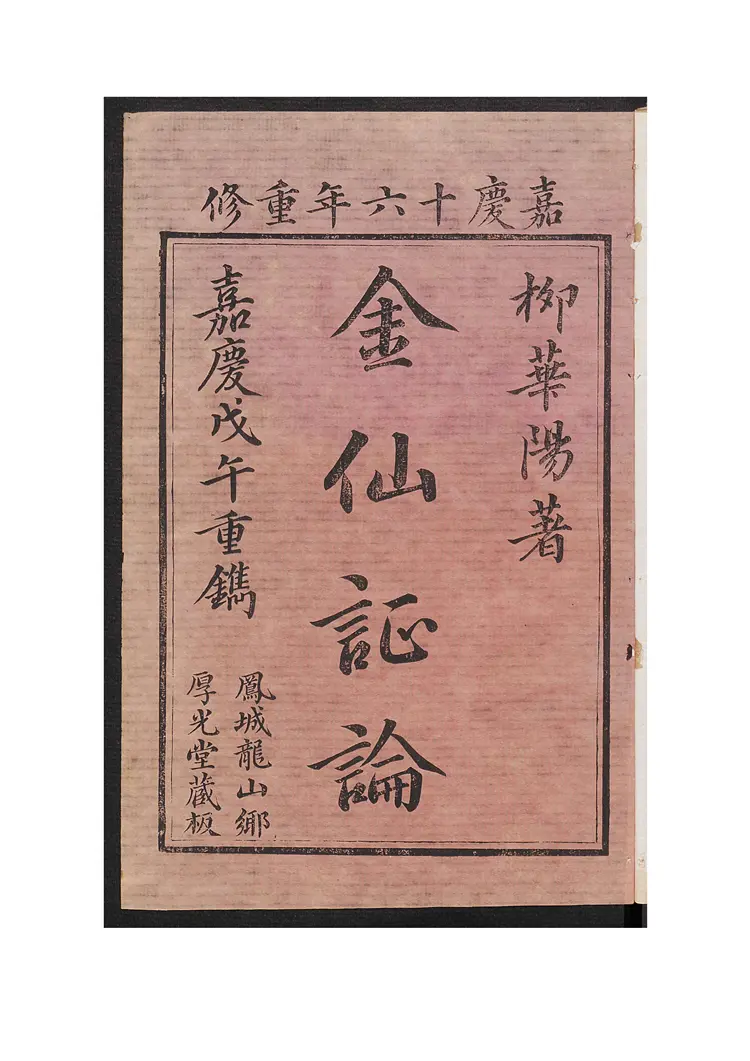 嘉慶十六年重修
柳華陽著
金仙証論
嘉慶戊午重鐫
鳳城龍山鄉
厚光堂藏板